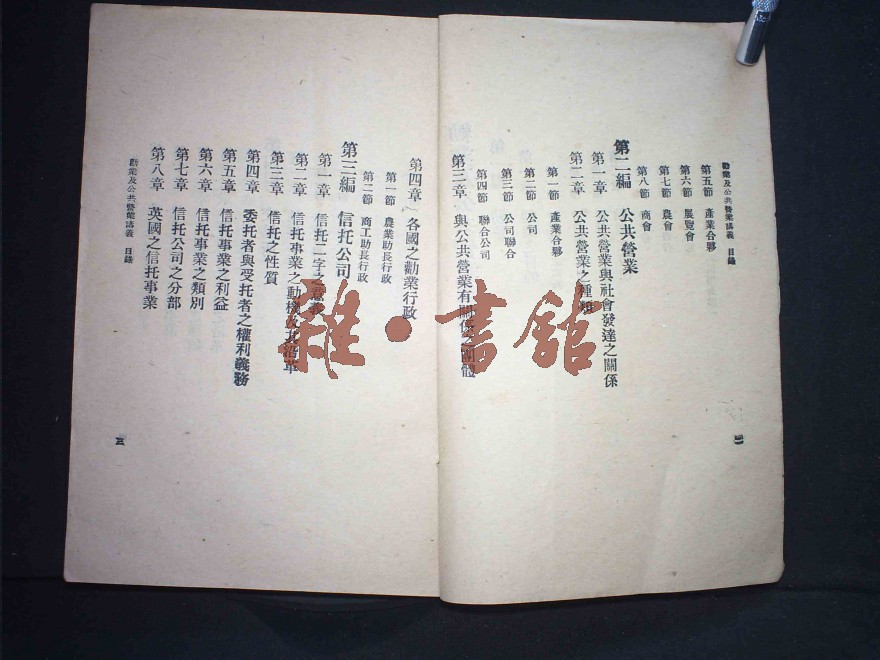 勸業及公共營業講義 目錄
第五節 產業合夥
第六節 展覽會
第七節 農會
第八節 商會
第二編 公共營業
第一章 公共營業與社會發達之關係
第二章 公共營業之種類
第一節 產業合夥
第二節 公司
第三節 公司聯合
第四節 聯合公司
第三章 與公共營業有關係之團體
二
第四章 各國之勸業行政
第一節 農業助長行政
第二節 商工助長行政
第三編 信托公司
第一章 信托二字之意義
第二章 信托事業之動機及其沿革
第三章 信托之性質
第四章 委托者與受托者之權利義務
第五章 信托事業之利益
第六章 信托事業之類別
第七章 信托公司之分部
第八章 英國之信托事業
勸業及公共營業講義 目錄
三
雜·書館